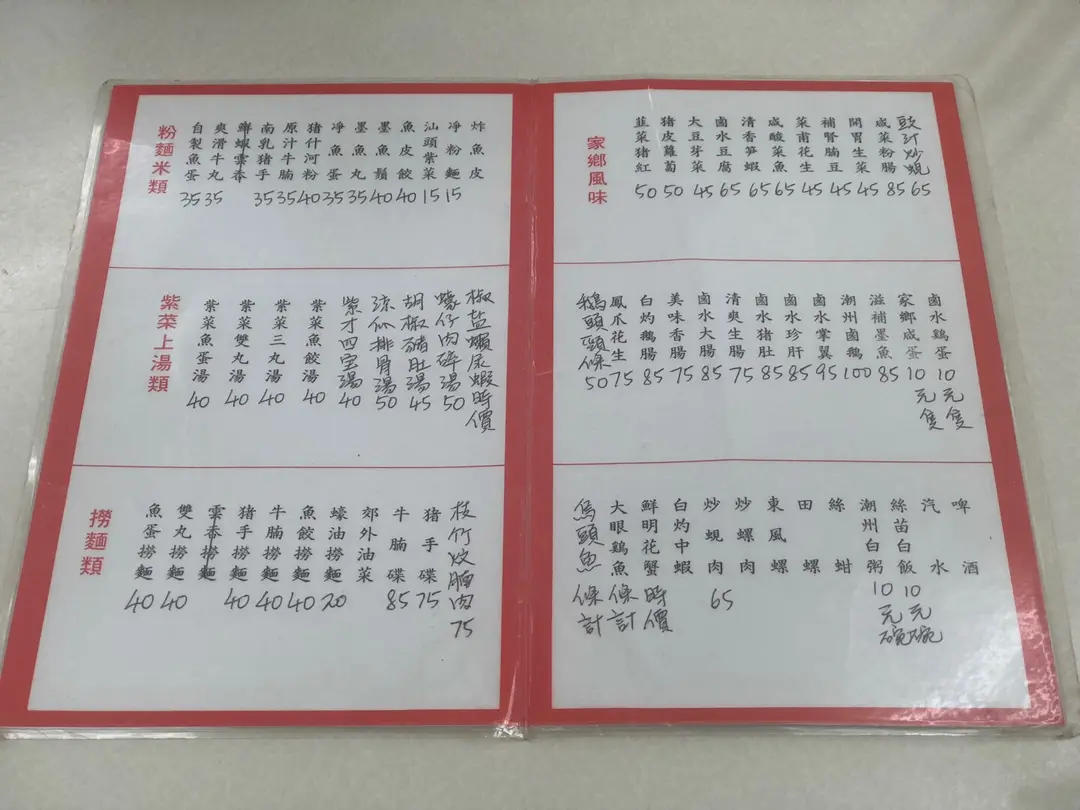 粉麵米類
自製魚蛋 35
爽滑牛丸 35
鮮蝦雲吞
南乳猪手 35
原汁牛腩 35
猪什河粉 40
淨魚蛋 35
墨魚丸 35
墨魚鬚 40
魚皮餃 40
汕頭紫菜 15
淨粉麵 15
炸魚皮
紫菜上湯類
紫菜魚蛋湯 40
紫菜雙丸湯 40
紫菜三丸湯 40
紫菜魚餃湯 40
紫才四宝湯 40
涼瓜排骨湯 50
胡椒豬肚湯 45
蠔仔肉碎湯 50
椒盐瀨尿蝦時價
撈麵類
魚蛋撈麵 40
雙丸撈麵 40
雲吞撈麵
猪手撈麵 40
牛腩撈麵 40
魚餃撈麵 40
蠔油撈麵 20
郊外油菜
牛腩碟 85
猪手碟 75
枝竹炆腩肉 75
家鄉風味
韮菜猪紅 50
猪皮蘿蔔 50
大豆芽菜 45
鹵水豆腐 65
清香笋蝦 65
咸酸菜魚 65
菜甫花生 45
補腎腩豆 45
開胃生菜 45
咸菜粉腸 85
豉汁炒蜆 65
鵝頭頸條 50
鳳爪花生 75
白灼鵝腸 85
美味香腸 75
鹵水大腸 85
清爽生腸 75
鹵水猪肚 85
鹵水珍肝 85
鹵水掌翼 95
潮州鹵鵝 100
滋補墨魚 85
家鄉咸蛋 10元隻
鹵水鷄蛋 10元隻
烏頭魚 條計
大眼鷄魚 條計
鮮明花蟹 時價
白灼中蝦
炒蜆肉 65
炒螺肉
東風螺
田螺
絲蚶
潮州白粥 10元碗
絲苗白飯 10元碗
汽水
啤酒